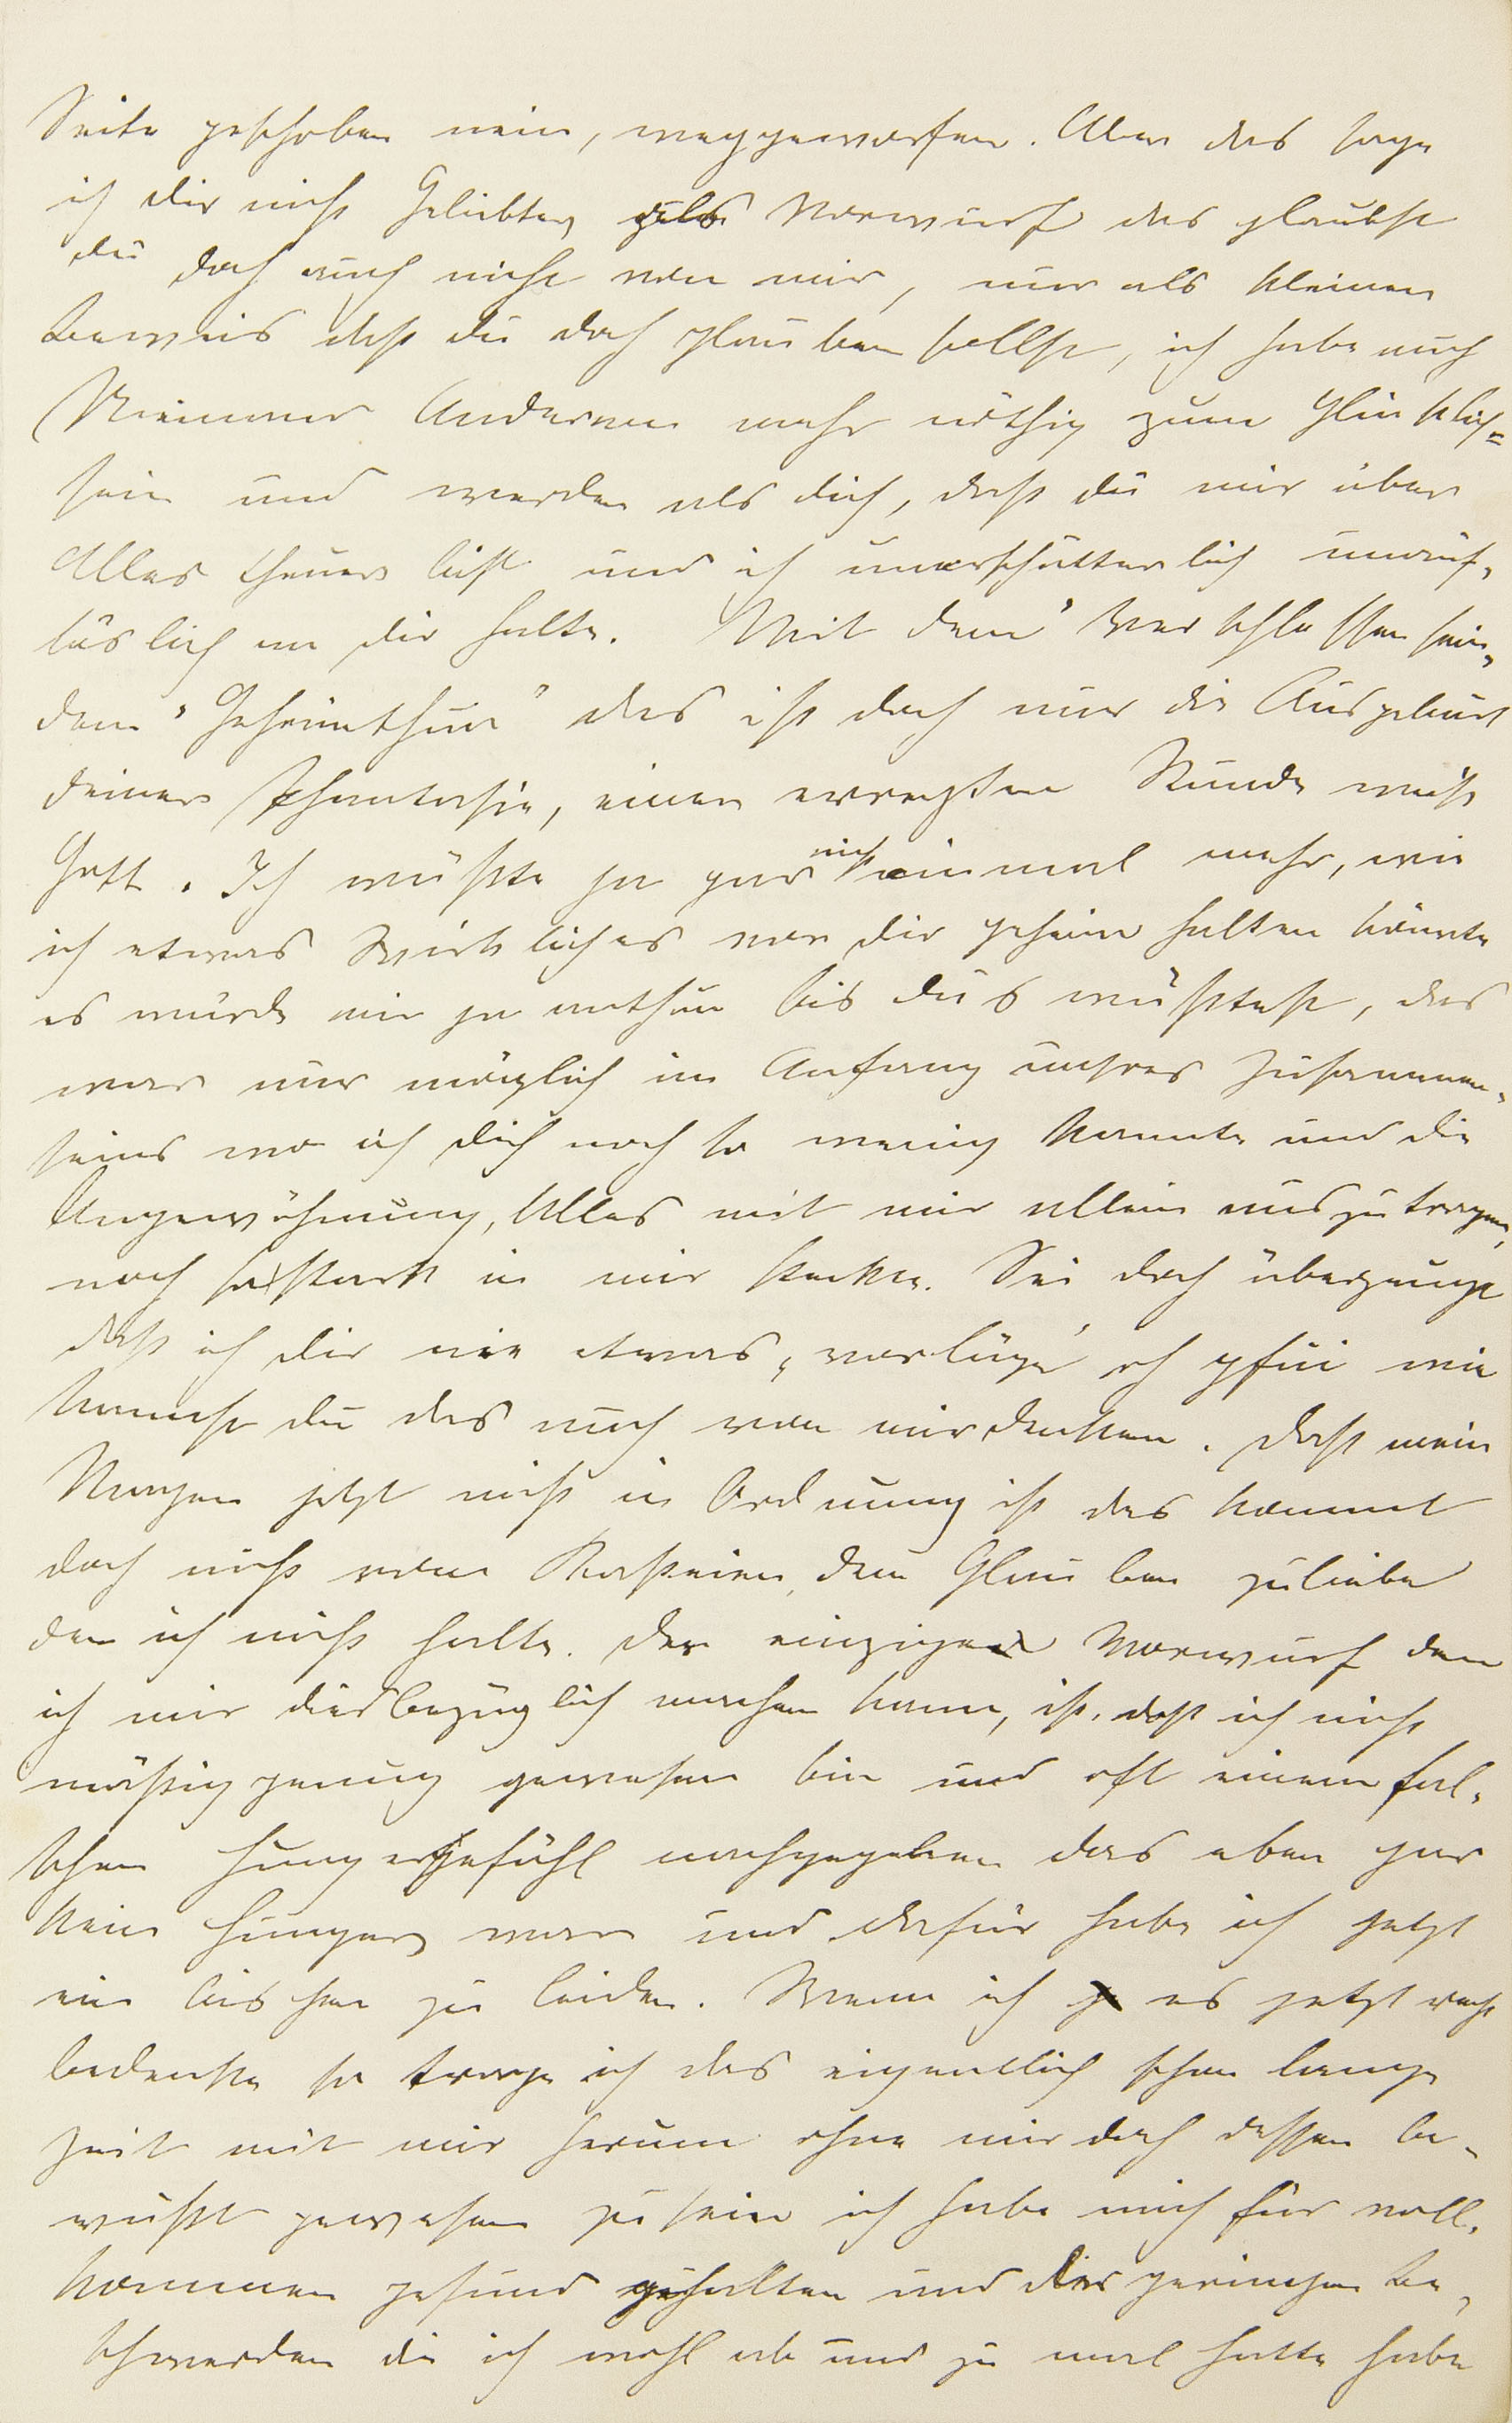 Seite geschoben nein, weggeworfen. Aber das sage
ich dir nicht Geliebter als Vorwurf das glaubst
du doch auch nicht von mir, nur als kleinen
Beweis daß du doch glauben sollst, ich habe auch
Niemand Anderen mehr nöthig zum Glücklich=
sein und werden als dich, daß du mir über
Alles theuer bist und ich unerschütterlich unauf„
löslich an dir halte. Mit dem "Verschlossen sein„
dem "Geheimthun" das ist doch nur die Ausgeburt
deiner Phantasie, einer erregten Stunde weiß
Gott. Ich wüßte ja gar nicht einmal mehr, wie
ich etwas Wirkliches vor dir geheim halten könnte
es würde mir ja wehthun bis du's wüßtest, das
war nur möglich im Anfang unsres Zusammen„
seins wo ich dich noch so wenig kannte und die
Angewöhnung, Alles mit mir allein auszutragen,
noch so stark in mir steckte. Sei doch überzeugt
daß ich dir nie etwas „vorlüge" oh pfui wie
kannst du das auch von mir denken. Daß mein
Magen jetzt nicht in Ordnung ist das kommt
doch nicht vom Kasteien, dem Glauben zuliebe
den ich nicht halte. Der einzige Vorwurf den
ich mir diesbezüglich machen kann, ist, daß ich nicht
mäßig genug gewesen bin und oft einem fal„
schen Hungergefühl nachgegeben das eben gar
kein Hunger war und dafür habe ich jetzt
ein bischen zu leiden. Wenn ich es jetzt recht
bedenke so trage ich das eigentlich schon lange
Zeit mit mir herum ohne mir doch dessen be„
wußt gewesen zu sein ich habe mich für voll„
kommen gesund gehalten und die geringen Be„
schwerden die ich wohl ab und zu mal hatte habe